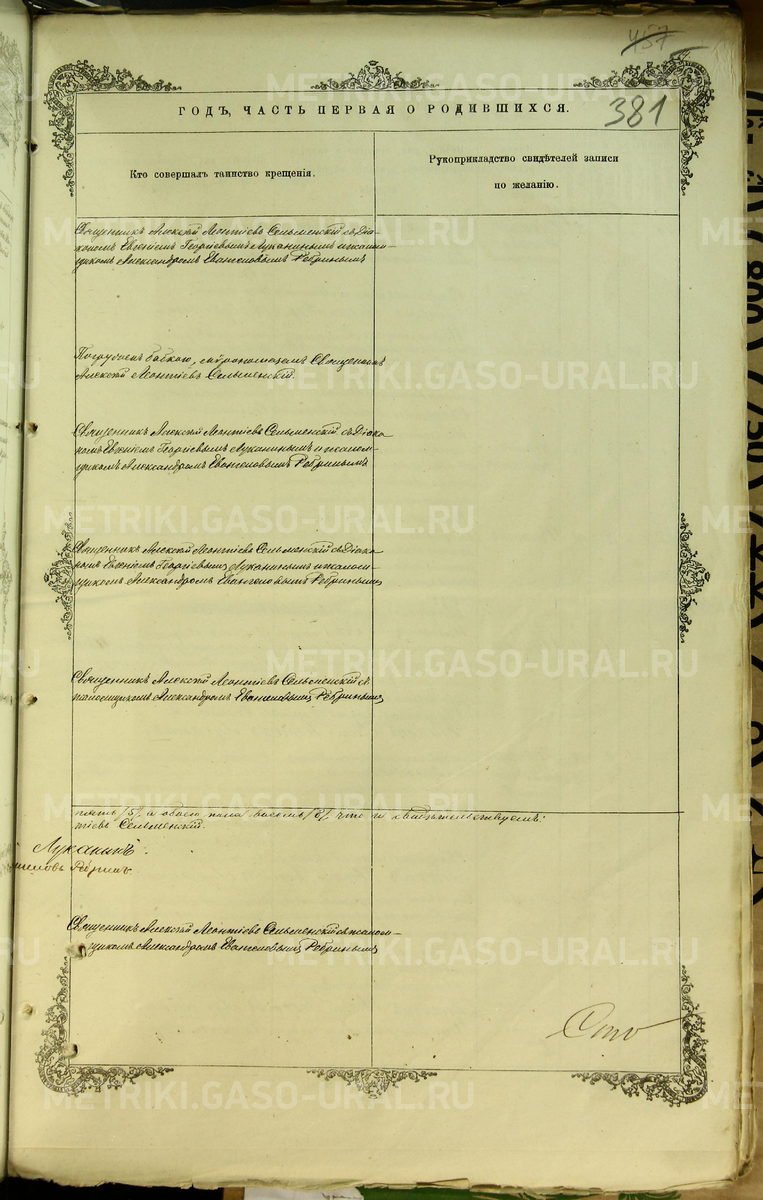 457
381
ГОДЪ, ЧАСТЬ ПЕРВАЯ О РОДИВШИХСЯ.
Кто совершалъ таинство крещенія.
Рукоприкладство свидѣтелей записи
по желанію.
Священникъ Алексій Леонтіевъ Сельменскій съ Діа-
кономъ Евгеніемъ Георгіевымъ Луканинымъ и псалом-
щикомъ Александромъ Евангеловымъ Ребринымъ
Погружаемъ бабкою, мѵропомазалъ Священникъ
Алексій Леонтіевъ Сельменскій.
Священникъ Алексій Леонтіевъ Сельменскій съ Діако-
номъ Евгеніемъ Георгіевымъ Луканинымъ и псалом-
щикомъ Александромъ Евангеловымъ Ребринымъ
Священникъ Алексій Леонтіевъ Сельменскій съ Діако-
номъ Евгеніемъ Георгіевымъ Луканинымъ и псалом-
щикомъ Александромъ Евангеловымъ Ребринымъ
Священникъ Алексій Леонтіевъ Сельменскій съ
псаломщикомъ Александромъ Евангеловымъ Ребринымъ
пять /5/, а обоего пола восемь /8/, что и свидѣтельствуемъ:
тіевъ Сельменскій.
Луканинъ.
Ребринъ
Священникъ Алексій Леонтіевъ Сельменскій съ псалом-
щикомъ Александромъ Евангеловымъ Ребринымъ
Сто
METRIKI.GASO-URAL.RU